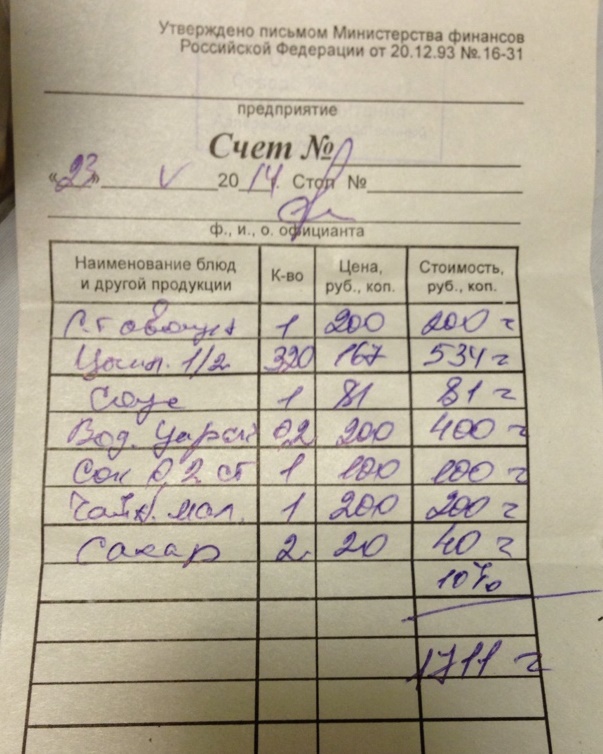 Утверждено письмом Министерства финансов
Российской Федерации от 20.12.93 № 16-31
предприятие
Счет №
«23» V 2014 Стол №
ф., и., о. официанта
Наименование блюд и другой продукции К-во Цена, руб., коп. Стоимость, руб., коп.
1 200 200 г
Цыпл. 1/2 320 167 534 г
Соус 1 81 81 г
Вод. Царск 0,2 200 400 г
Сок 0,2 ст 1 100 100 г
Чайн. мал. 1 200 200 г
Сахар 2 20 40 г
10%
1711 г